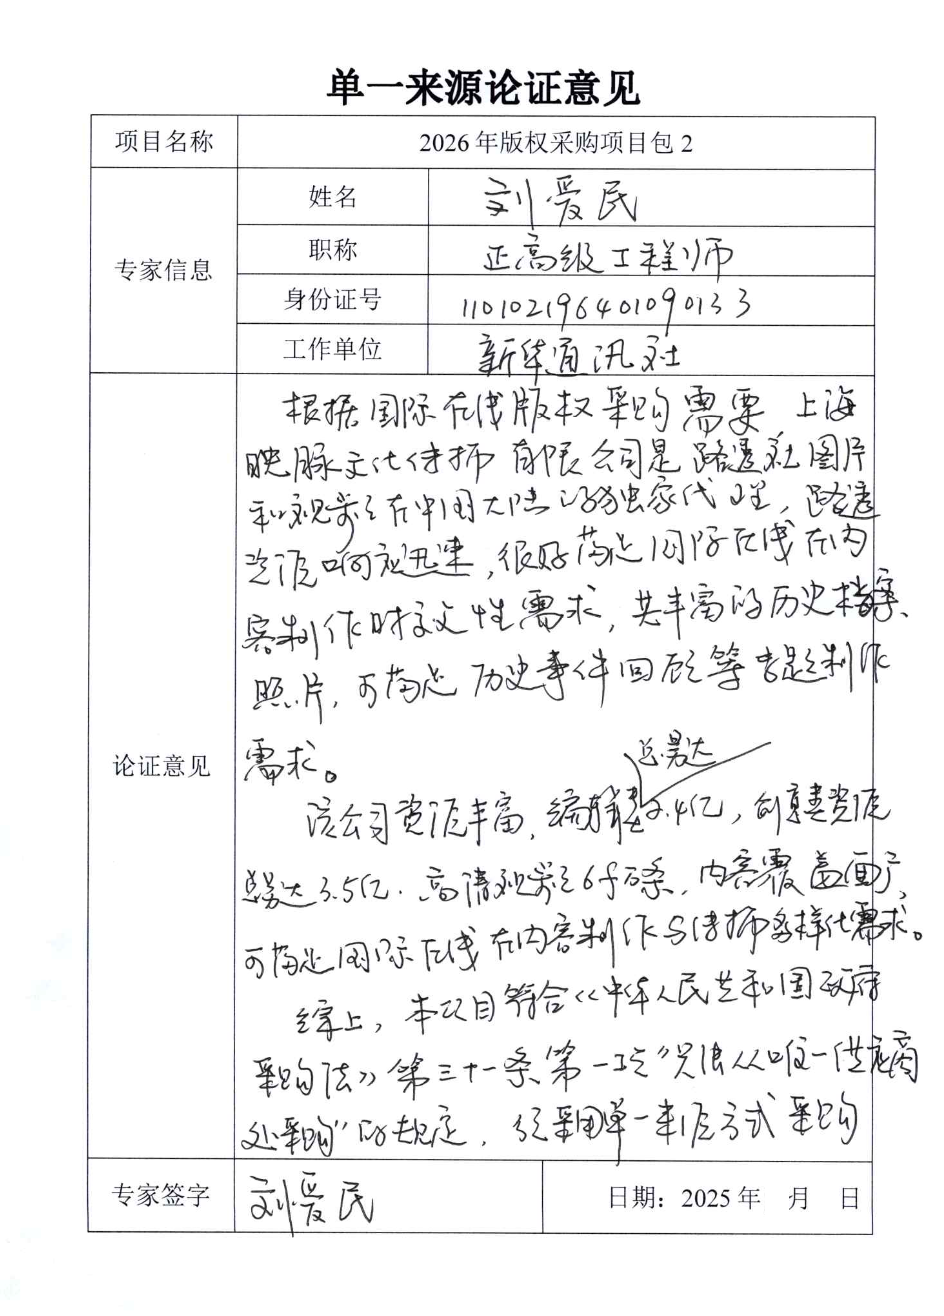 单一来源论证意见
项目名称 2026年版权采购项目包2
专家信息
姓名 刘爱民
职称 正高级工程师
身份证号 110102196401090133
工作单位 新华通讯社
论证意见
根据国际在线版权采购需要,上海
映脉文化传播有限公司是路透社图片
和视频在中国大陆的独家代理,路透
资源响应迅速,很好满足国际在线在内
容制作时效性需求,其丰富的历史档案、
照片,可满足历史事件回顾等专题制作
需求。
总量达
该公司资源丰富,编辑类2.4亿,创意类资源
总量达3.5亿.高清视频6千万条,内容覆盖面广,
可满足国际在线在内容制作与传播多样化需求。
综上,本项目符合《中华人民共和国政府
采购法》第三十一条第一项“只能从唯一供应商
处采购”的规定,须采用单一来源方式采购
专家签字 刘爱民 日期:2025年 月 日